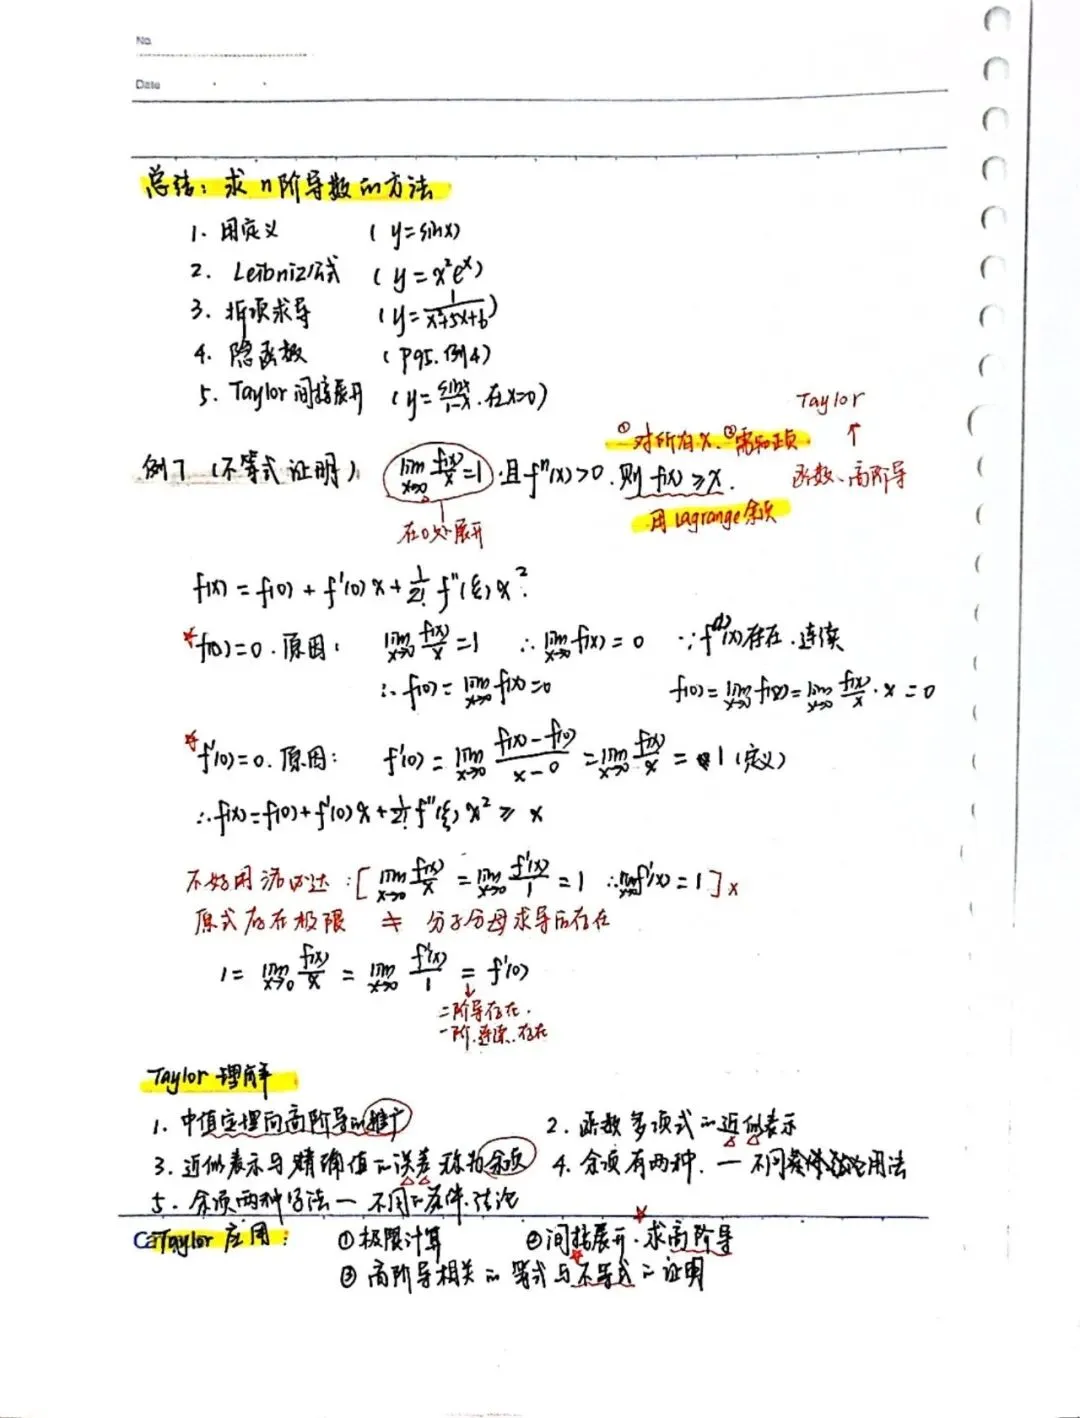 No.
Date
总结：求n阶导数的方法
1. 用定义 (y=sinx)
2. Leibniz公式 (y=x²eˣ)
3. 拆项求导 (y=1/(x²+5x+6))
4. 隐函数 (P95.例4)
5. Taylor间接展开 (y=sinx/(1-x).在x=0)
Taylor
↑
函数、高阶导
①对所有x.②需知正负.
例7 (不等式证明) lim(x→0) f(x)/x=1.且f''(x)>0.则f(x)≥x.
在0处展开
用Lagrange余项
f(x)=f(0)+f'(0)x+1/2! f''(ξ)x².
*f(0)=0.原因: lim(x→0) f(x)/x=1 ∴lim(x→0) f(x)=0 ∵f⁽²⁾(x)存在.连续
∴f(0)=lim(x→0) f(x)=0 f(0)=lim(x→0) f(x)=lim(x→0) f(x)/x·x=0
*f'(0)=0.原因: f'(0)=lim(x→0) (f(x)-f(0))/(x-0)=lim(x→0) f(x)/x=1 (定义)
∴f(x)=f(0)+f'(0)x+1/2! f''(ξ)x²≥x
不好用洛必达:[lim(x→0) f(x)/x=lim(x→0) f'(x)/1=1 ∴lim(x→0) f'(x)=1]×
原式存在极限 ⇍ 分子分母求导后存在
1=lim(x→0) f(x)/x=lim(x→0) f'(x)/1=f'(0)
↓
二阶导存在.
一阶.连续.存在
Taylor理解
1. 中值定理向高阶导的推广
2. 函数多项式的近似表示
3. 近似表示与精确值的误差称为余项
4. 余项有两种.一不同用法
5. 余项两种写法一不同的条件.结论
Taylor应用: ①极限计算 ②间接展开.求高阶导
③高阶导相关的等式与不等式的证明